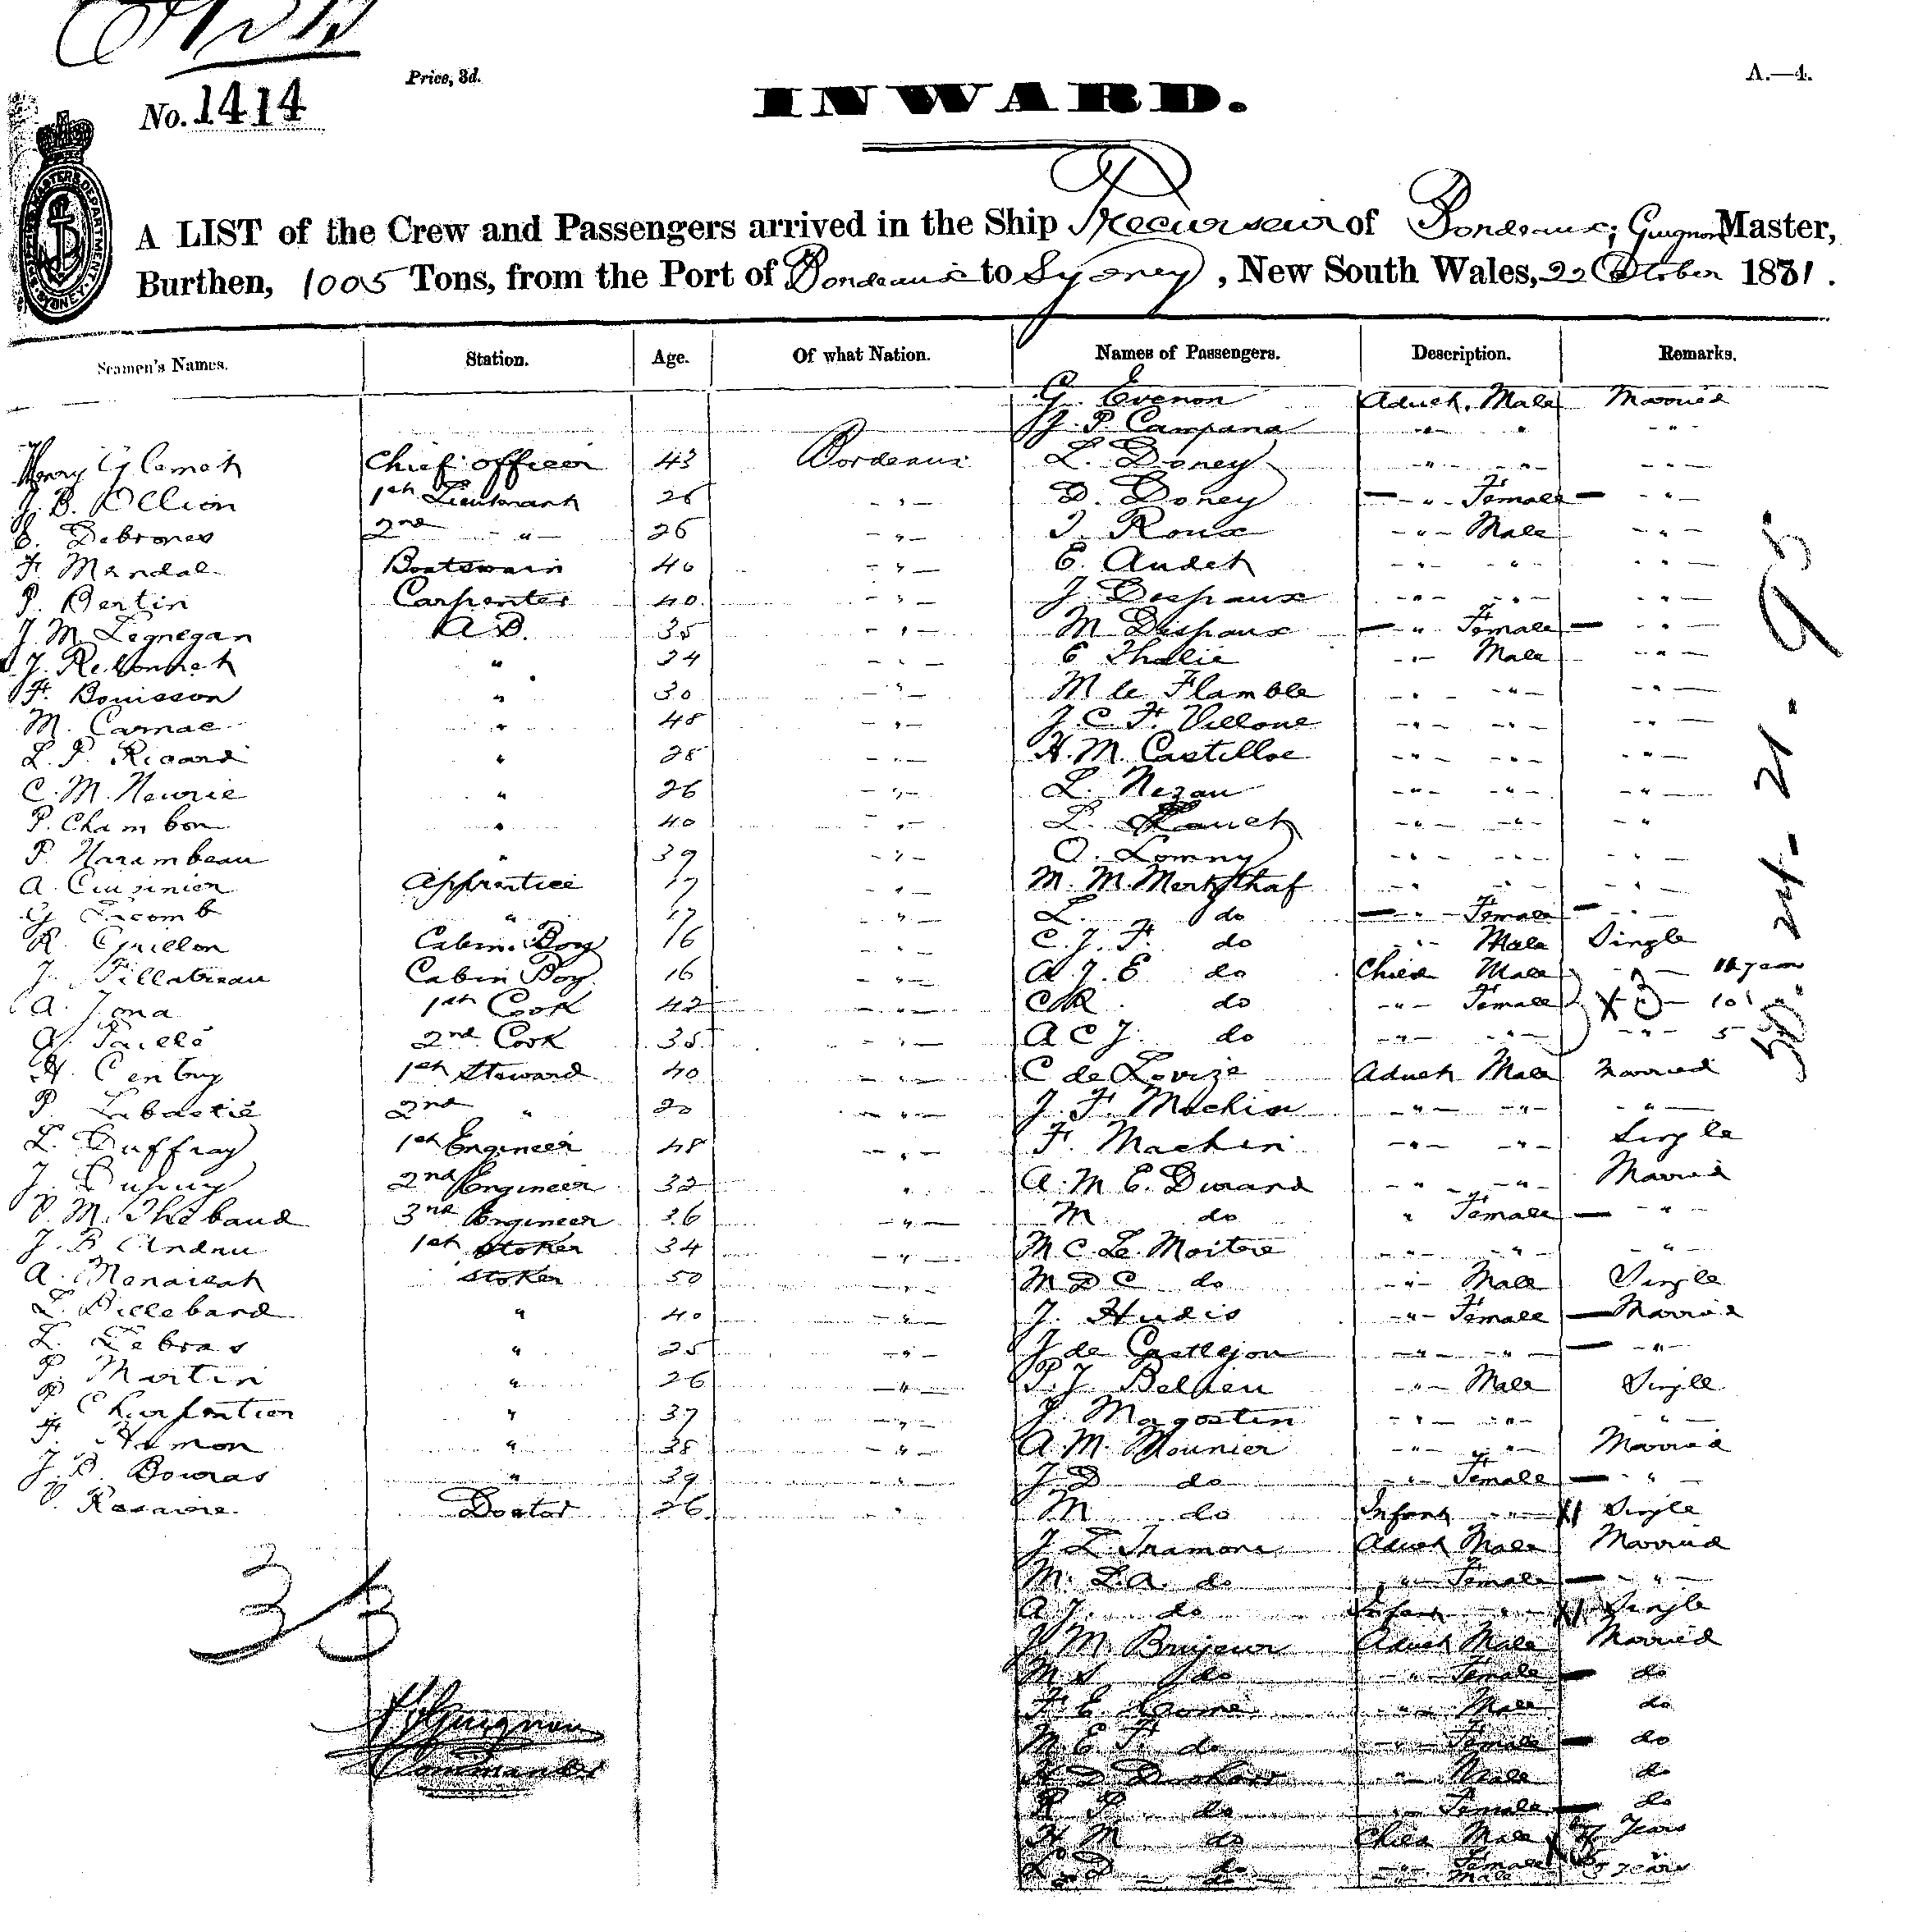 No. 1414
Price, 3d.
A.—4.
INWARD.
A LIST of the Crew and Passengers arrived in the Ship Precurseur of Bordeaux, Guignon Master,
Burthen, 1005 Tons, from the Port of Bordeaux to Sydney, New South Wales, 22 October 1881.
Seamen's Names. Station. Age. Of what Nation. Names of Passengers. Description. Remarks.
G. Evenon Adult. Male Married
J. P. Campana " " "
Henry Clemet Chief officer 43 Bordeaux L. Doney " " "
J. B. Ollion 1st Lieutenant 26 " D. Doney " Female "
E. Debrones 2nd " 26 " J. Roux " Male "
F. Mendal Boatswain 40 " E. Audet " " "
P. Bertin Carpenter 40 " J. Despaux " " "
J. M. Legnegan A.B. 35 " M Despaux " Female "
J. Rebonnet " 24 " E Thalie " Male "
F. Bouisson " 30 " M le Flamble " " "
M. Carnac " 48 " J. C. F. Villone " " "
L. P. Ricard " 28 " H. M. Castilloe " " "
C. M. Neurie " 26 " L. Nezau " " "
P. Chambon " 40 " L. " " "
P. Harambeau " 39 " O. Lomny " " "
A. Cuisinier Apprentice 17 " M. M. Merksthaf " " "
G Lacomb " 17 " L. do " Female "
R. Guillon Cabin Boy 16 " C. J. F. do " Male Single
J. Fillatreau Cabin Boy 16 " A. J. E do Child Male " years
A. Jona 1st Cook 42 " C R do " Female 3 10 "
A. Paillé 2nd Cook 35 " A C J. do " " " 5 "
H. Centuy 1st Steward 40 " C de Lovize Adult Male Married
P. Labastie 2nd " 20 " J. F. Machin " " "
L. Duffray 1st Engineer 48 " F. Machin " " Single
J. Dupuy 2nd Engineer 32 " A. M E. Durand " " Married
P. M. Thebaud 3rd Engineer 36 " M do " Female "
J. B Andreu 1st Stoker 34 " M C. Le Maitre " " "
A. Monaicah Stoker 50 " M D C do " Male Single
L. Billebard " 40 " J. Hudis " Female Married
L. Lebras " 25 " J de Castlejon " " "
P. Martin " 26 " P. J Belheu " Male Single
P. Charpentier " 37 " J. Magostin " " "
F. Hamon " 38 " A. M. Mounier " " Married
J. B. Bouras " 39 " J D do " Female "
V. Rosaine Doctor 26 " M do Infant " Single
J L Tramoni Adult Male Married
M. L. A. do " Female "
A J. do Infant " Single
J M Brujeur Adult Male Married
M S do " Female do
F. E. " Male do
M E F do " Female do
H D " Male do
R P. do " Female do
H M do Child Male 7 Years
L D do " Female 5 years
do Male
33
Guignon
Commander
50. 24 - 21. 95